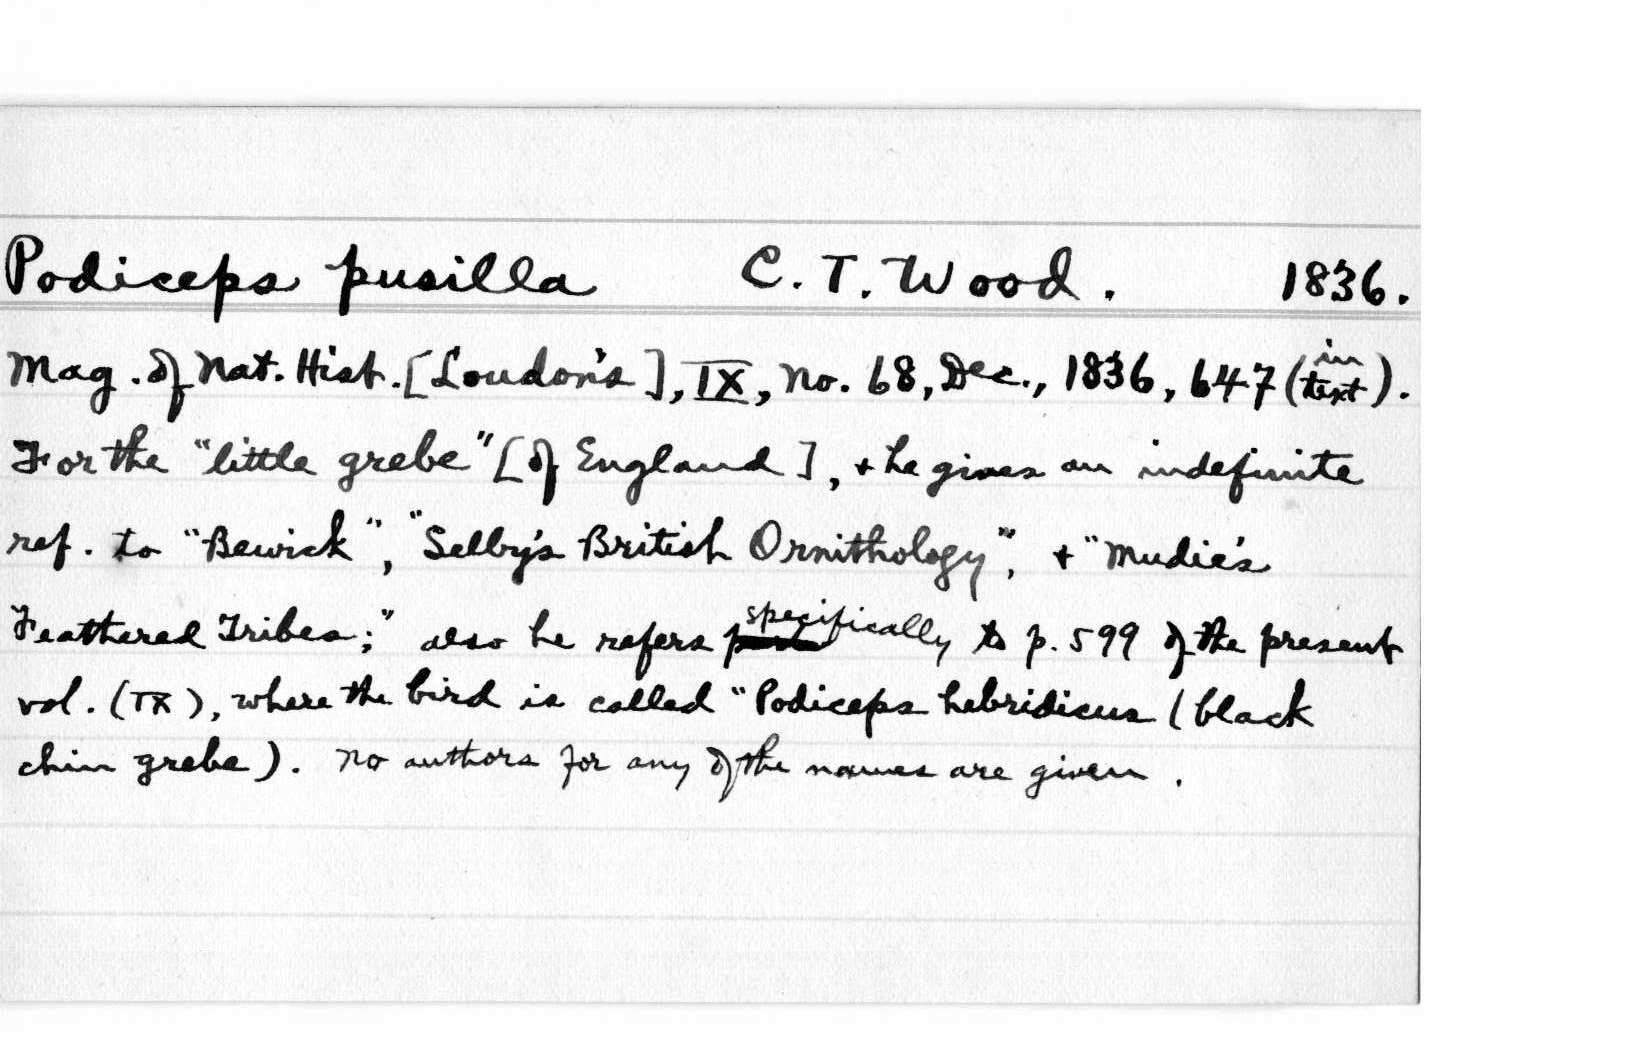 Podiceps pusilla C. T. Wood. 1836.
Mag. of Nat. Hist. [Loudon's], IX, No. 68, Dec., 1836, 647 (in text).
For the "little grebe" [of England], + he gives an indefinite
ref. to "Bewick", "Selby's British Ornithology", + "Mudie's
Feathered Tribes;" also he refers specifically to p. 599 of the present
vol. (IX), where the bird is called "Podiceps hebridicus (black
chin grebe). No authors for any of the names are given.